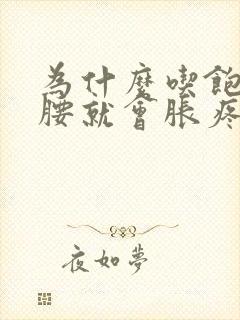 為什麼吃飽
腰就會脹疼
夜如夢